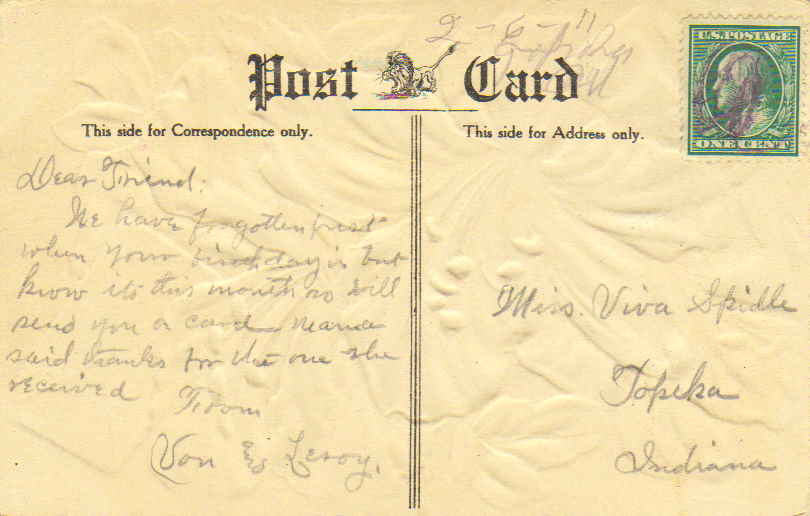 2-6-11
Topeka
Post Card
U.S. POSTAGE
ONE CENT
This side for Correspondence only.
This side for Address only.
Dear Friend:
We have forgotten just
when your birthday is but
know its this month so will
send you a card
said thanks for the one she
received From
Von Leroy.
Miss. Viva Spidle
Topeka
Indiana